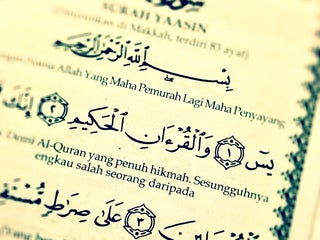 سورة
SURAH YAASIN
(Diturunkan di Makkah, terdiri 83 ayat)
بِسْمِ اللَّهِ الرَّحْمَٰنِ الرَّحِيمِ
Nama Allah Yang Maha Pemurah Lagi Maha Penyayang
يسٓ ١ وَالْقُرْءَانِ الْحَكِيمِ ٢ إِنَّكَ
Demi Al-Quran yang penuh hikmah. Sesungguhnya
engkau salah seorang daripada
٣ عَلَىٰ صِرَٰطٍ